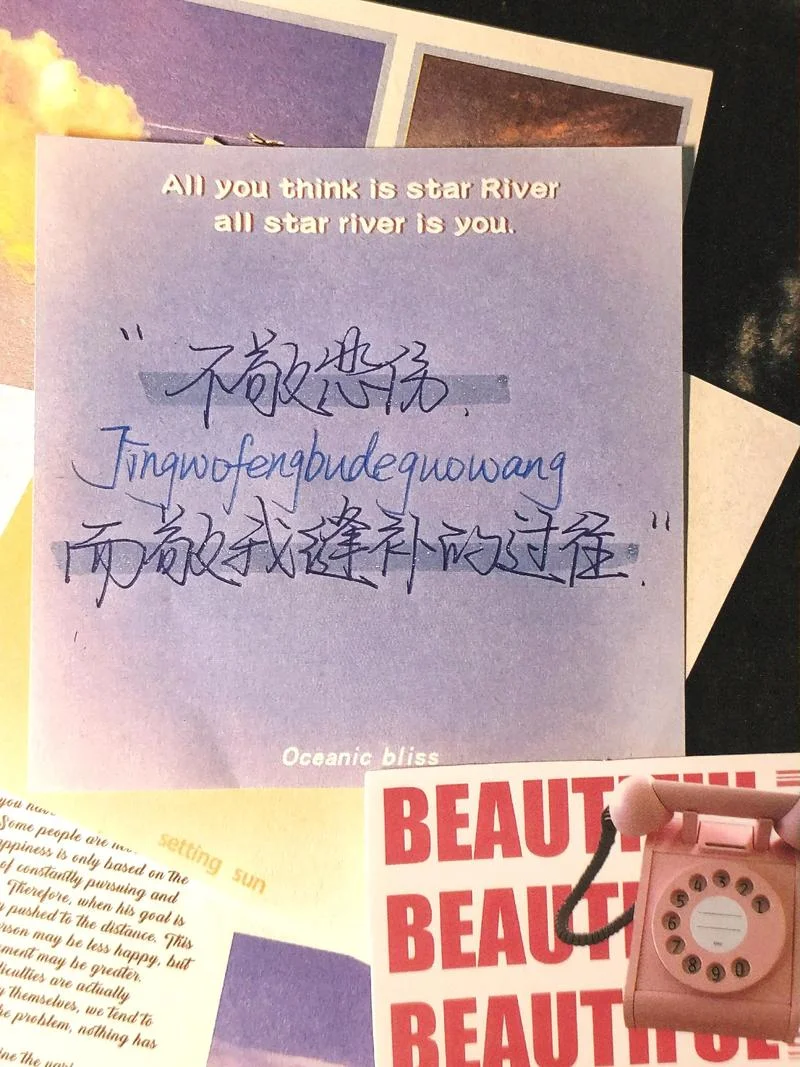 All you think is star River
all star river is you.
"不敬悲伤,
Jingwofengbudeguowang
而敬我缝补的过往."
Oceanic bliss
setting sun
you
Some people are
appiness is only based on the
of constantly pursuing and
Therefore, when his goal is
pushed to the distance. This
erson may be less happy, but
ement may be greater.
ficulties are actually
themselves, we tend to
e problem, nothing has
ine the
BEAUTIFUL
BEAUT
BEAUTIFUL
1 2 3 4 5 6 7 8 9 0